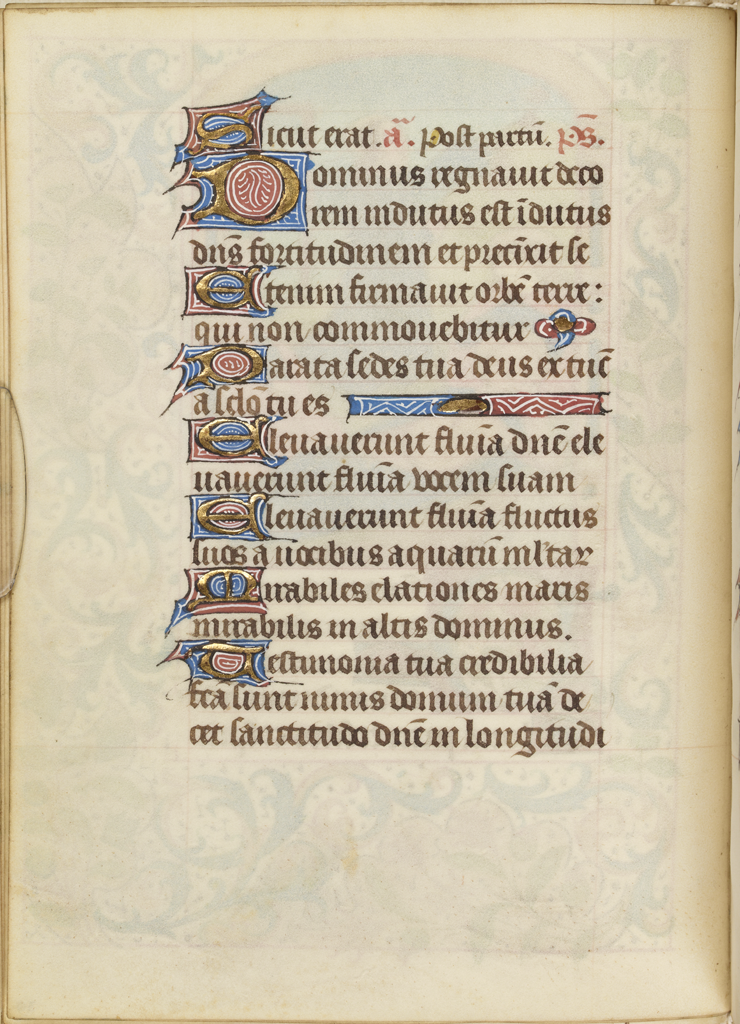 Sicut erat. a̅. Post partū. p̅s̅.
Dominus regnauit deco
rem indutus est īdutus
dn̄s fortitudinem et precīxit se
Etenim firmauit orbē terre:
qui non commouebitur
Parata sedes tua deus ex tūc
a sc̄lo tu es
Eleuauerunt flūīa dn̄e ele
uauerunt flūīa vocem suam
Eleuauerunt flūīa fluctus
suos a uocibus aquarū ml̄tar
Mirabiles elationes maris
mirabilis in altis dominus.
Testimonia tua credibilia
fc̄ā sunt nimis domum tuā de
cet sanctitudo dn̄e in longitudi